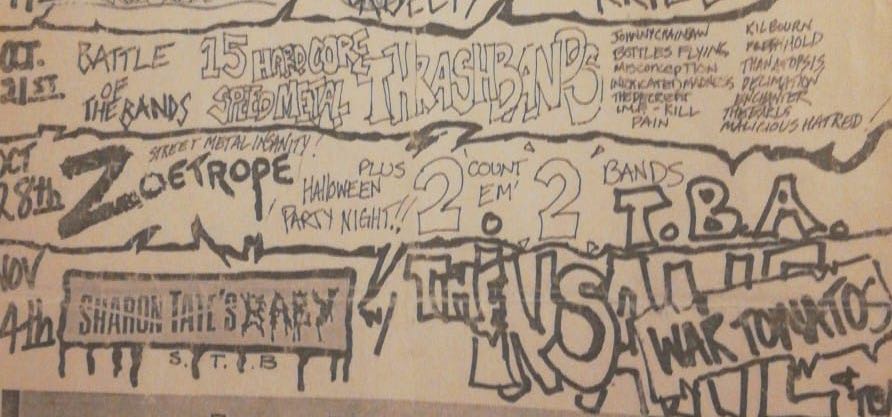 OCT.
21ST.
BATTLE
OF
THE BANDS
15 HARDCORE
SPEED METAL
THRASH BANDS
JOHNNYCRAINAW
BOTTLES FLYING
MISCONCEPTION
INTOXICATED MADNESS
THE DECREPT
KILL
PAIN
KILBOURN
HOLD
THANATOPSIS
DECIMATION
ENCHANTER
THE EARLS
MALICIOUS HATRED!
OCT
28th
STREET METAL INSANITY!
ZOETROPE
PLUS
HALLOWEEN
PARTY NIGHT.!!
2 COUNT 2
EM'
BANDS
T.B.A.
NOV
4th
SHARON TATE'S BABY
S.T.B
THE INSANE
WAR TOMATOS